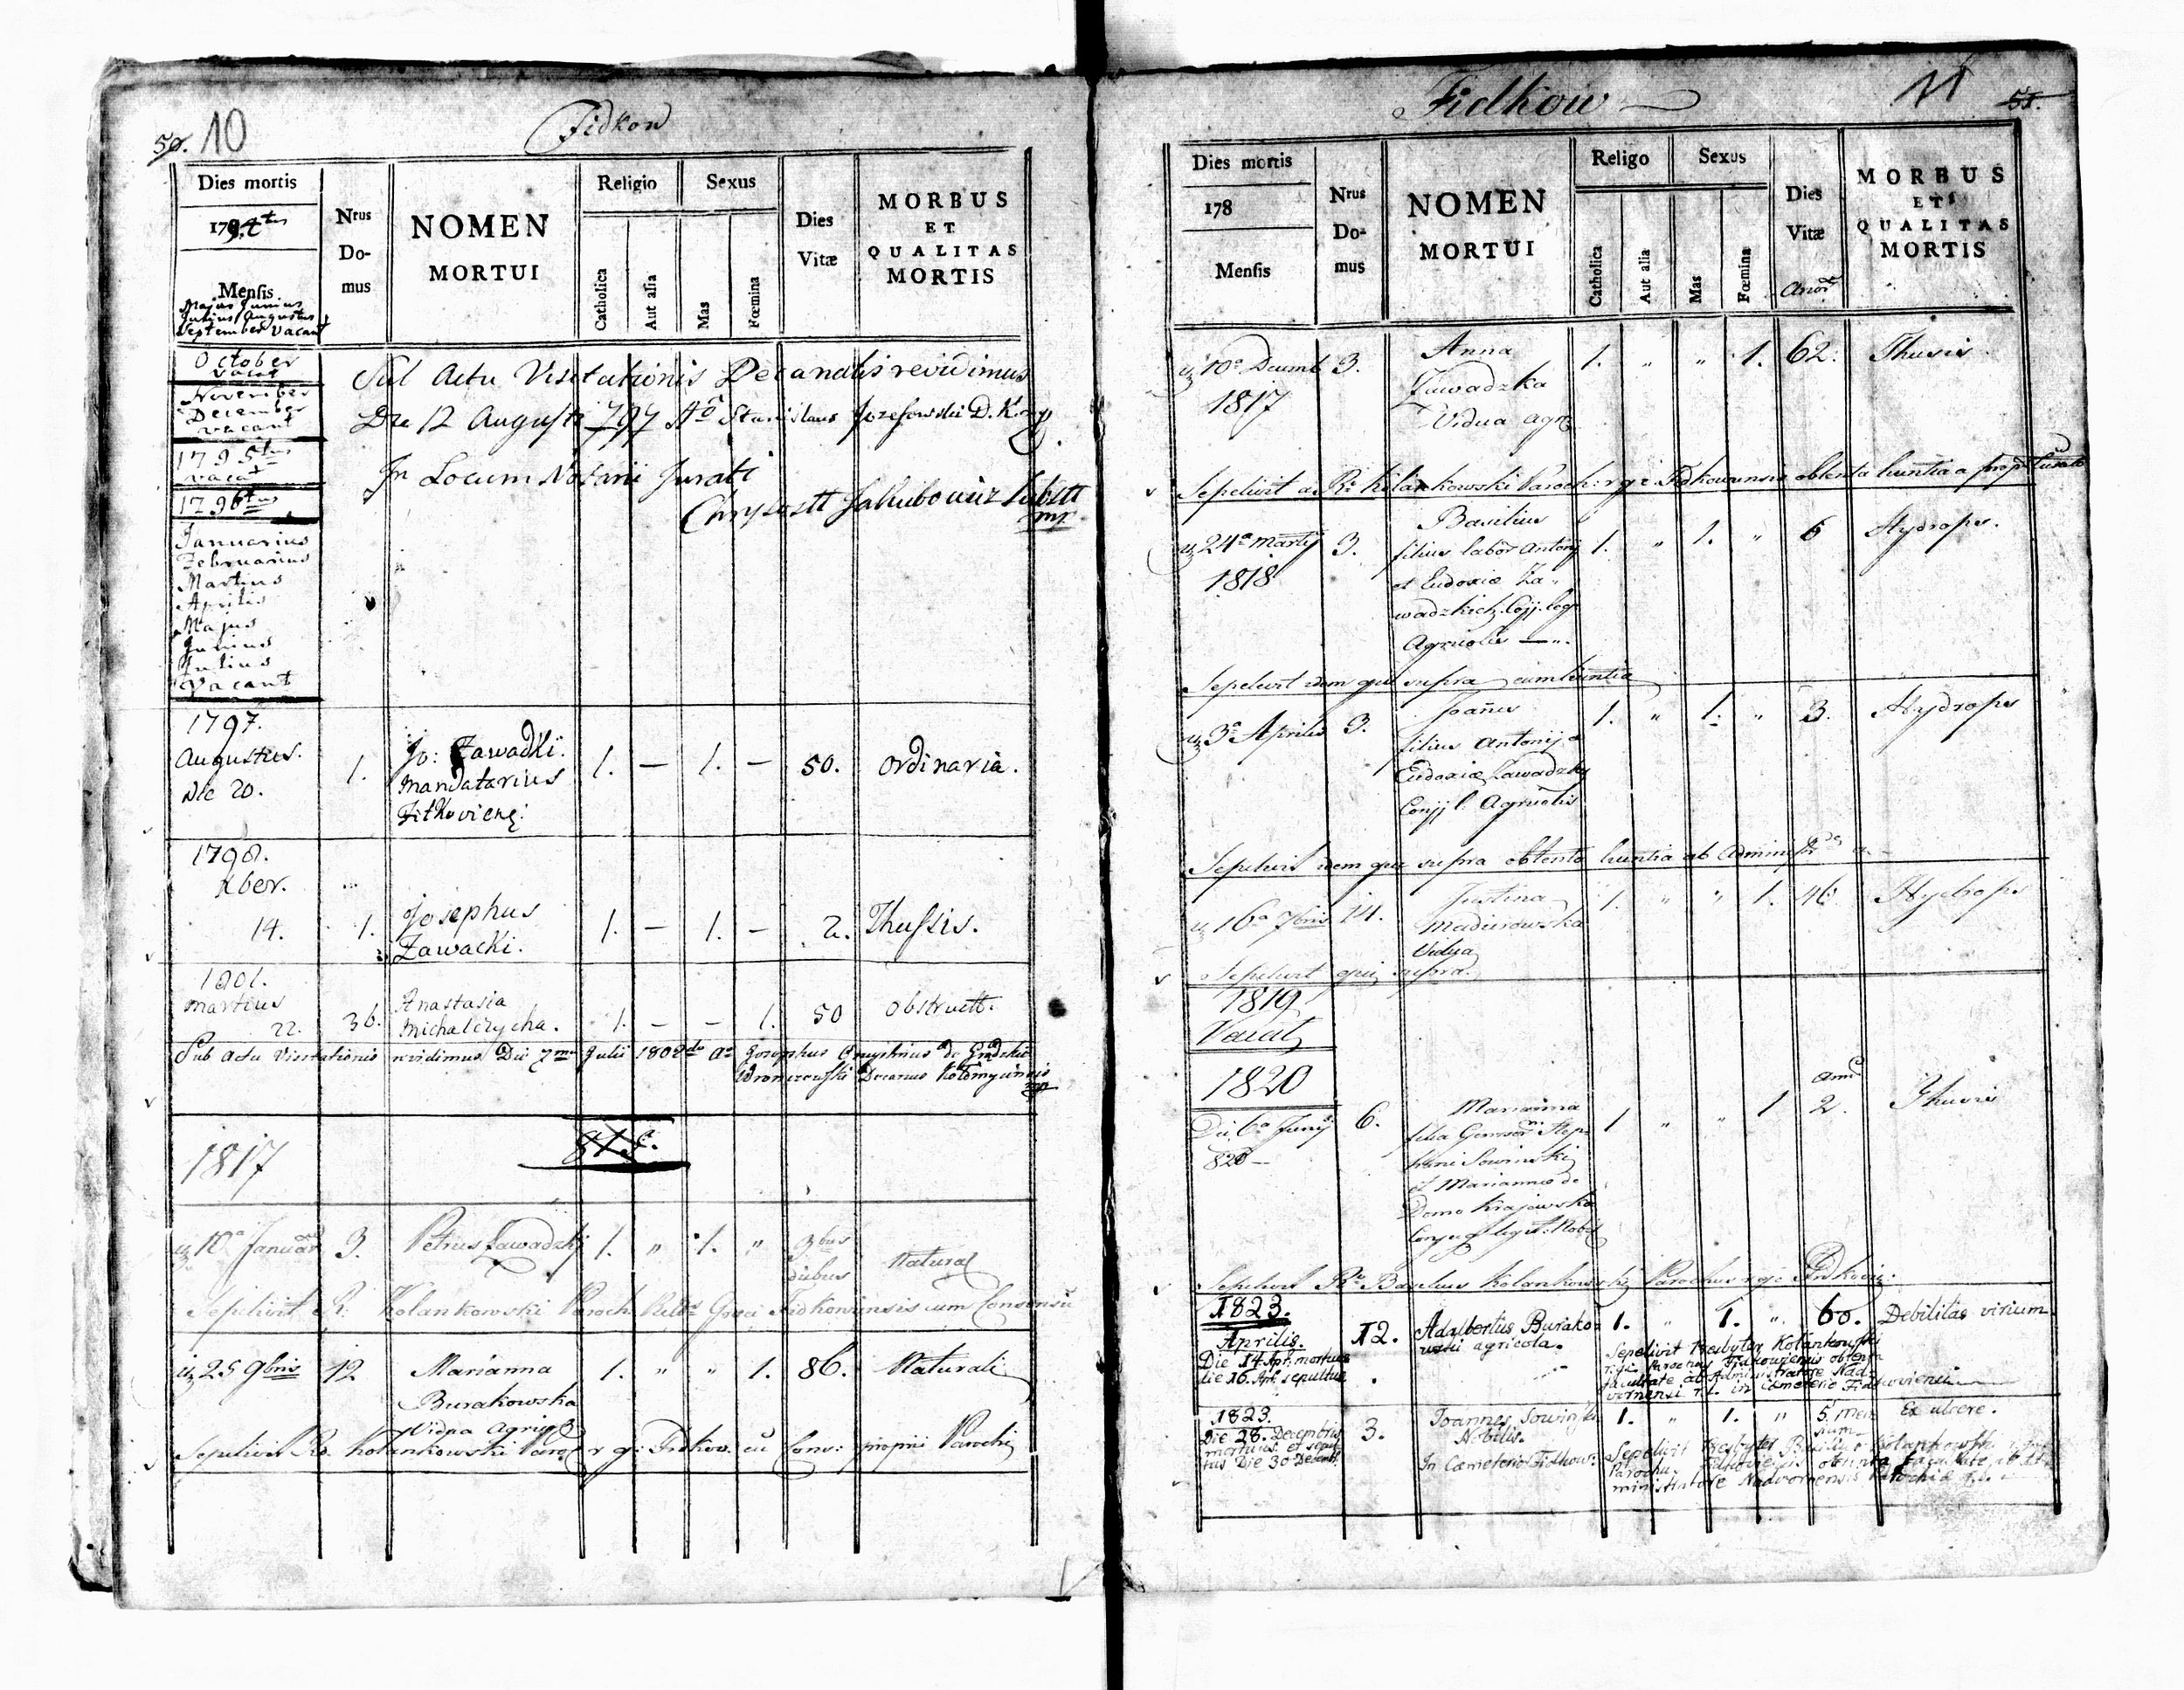 50. 10
Fidkow
Dies mortis
1794tus
Mensis
Majus Junius
Julius Augustus
September vacant
Nrus Do-mus
NOMEN
MORTUI
Religio
Catholica
Aut alia
Sexus
Mas
Fœmina
Dies
Vitæ
MORBUS
ET
QUALITAS
MORTIS
October
vacat
November
December
vacant
1795tus
vacat
1796tus
Januarius
Februarius
Martius
Aprilis
Majus
Junius
Julius
Vacant
Sub Actu Visitationis Decanalis revidimus
Die 12 Augusti 797 Ao Stanislaus Jozefowski D. K.
In Locum Notarii Jurati
Jakubowicz
mp
1797.
Augustus.
Die 20.
1.
Jo: Zawadki.
Mandatarius
1. — 1. — 50. Ordinaria.
1798.
Xber.
14. 1.
Josephus
Zawacki.
1. — 1. — 2. Thussis.
1801.
Martius
22. 36.
Anastasia
Michalczycha.
1. — — 1. 50 obstructt.
Sub actu Visitationis revidimus Die 7ma Julii 1802do Ao Josephus
Decanus
1817
10a Januar 3. Petrus Zawadzki 1. " 1. " 9bus
diebus
Natural
Sepelivit R: Kolankowski Paroch. Graeci Fidkowiensis cum Consensu
25 9bris 12
Marianna
Burakowska
Vidua Agric
1. " " 1. 86. Naturali
Sepelivit Kolankowski r g: Fidkow. cu Cons: proprii Parochi
Fidkow
11 51.
Dies mortis
178
Mensis
Nrus
Do-
mus
NOMEN
MORTUI
Religo
Catholica
Aut alia
Sexus
Mas
Fœmina
Dies
Vitæ
MORBUS
ET
QUALITAS
MORTIS
10a Decemb 3.
1817
Anna
Zawadzka
Vidua agr
1. " " 1. 62. Thusis.
Sepelivit a Kolankowski Paroch: r g: Fidkowiensis obtenta licentia a
24a Martij 3.
1818
Basilius
filius labor Antonij
et Eudoxiæ Za
wadzkich Cojj. leg
Agricolis —".
1. " 1. " 6 Hydrops.
Sepelivit idem qui supra cum licentia
3a Aprilis 3.
Joañes
filius Antonij &
Eudoxiæ Zawadzky
Conjj l. Agricolis
1. " 1. " 3. Hydrops
Sepelivit idem qui supra obtenta licentia ab
16a 7bris 14.
Justina
Vidua
1. " " 1. 46. Hydrops
Sepelivit qui supra.
1819
Vacat
1820
Die 6a Junij
820 —
6.
Marianna
filia Step
hani Sowinski
et Mariannæ de
Domo Krajewska
1 " " 1 2. Thusis
Sepelivit Rs Basilius Kolankowski Parochus r g:
1823.
Aprilis.
Die 14 Apl: mortuus
die 16. Apl. sepultus
12.
Adalbertus Burako-
wski agricola.
1. " 1. " 60. Debilitas virium.
Sepelivit Presbyter Kolankowski
r. g. Parochus Fidkowiensis obtenta
facultate ab Administratore Nad-
vornensi r. l. in Cæmeterio Fidkoviensi
1823.
Die 28. Decembris
mortuus et sepul
tus Die 30 Decemb.
3.
Joannes Sowinski
Nobilis.
In Cæmeterio Fidkow:
1. " 1. " 5. men
sium
Ex ulcere.
Sepelivit Presbyter Kolankowski
Parochus Fidkoviensis obtenta facultate ab Ad-
ministratore Nadvornensis Parochiæ